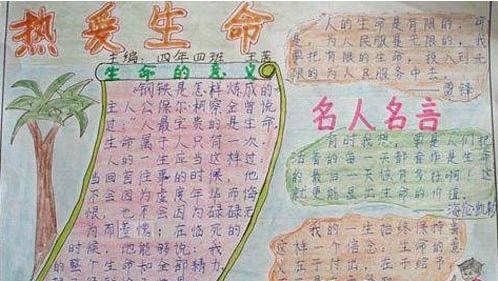 热爱生命
主编：四年四班 王茜
生命的意义
《钢铁是怎样炼成的》
主人公保尔·柯察金曾说
过：“人最宝贵的是生命，
生命属于人只有一次，
人的一生应当这样过：
当回首往事的时候，他
不会因为虚度年华而悔
恨，也不会因为碌碌无
为而羞愧；在临死的
时候，他能够说：我
的整个生命和全部精力，
“人的生命是有限的，可
是，为人民服是无限的，我
要把有限的生命，投入到无
限的为人民服务中去。
——雷锋
名人名言
有时我想，要是人们把
活着的每一天都看作是生命
的最后一天该有多好啊！这
就更能显出生命的价值。
海伦·凯勒
我的一生始终保持着
这样一个信念：生命的意
义在于付出，在于给予